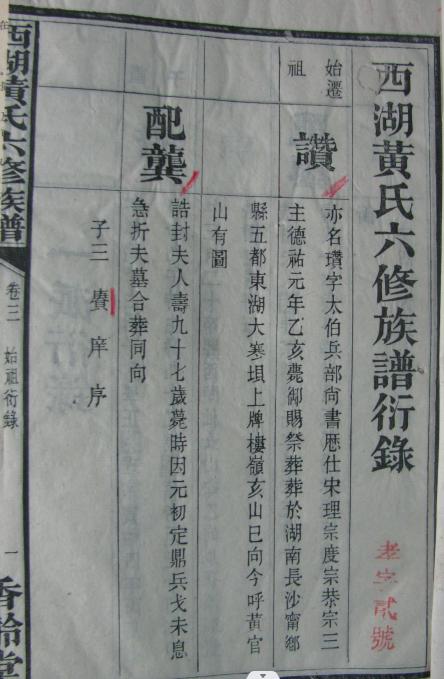 西湖黃氏六修族譜衍錄
老字貳號
始遷
祖
讚
亦名瓚字太伯兵部尙書歷仕宋理宗度宗恭宗三
主德祐元年乙亥薨御賜祭葬葬於湖南長沙甯鄉
縣五都東湖大寒垻上牌樓嶺亥山巳向今呼黃官
山有圖
配龔
誥封夫人壽九十七歲薨時因元初定鼎兵戈未息
急折夫墓合葬同向
子三 賡庠序
西湖黃氏六修族譜
卷三 始祖衍錄
一